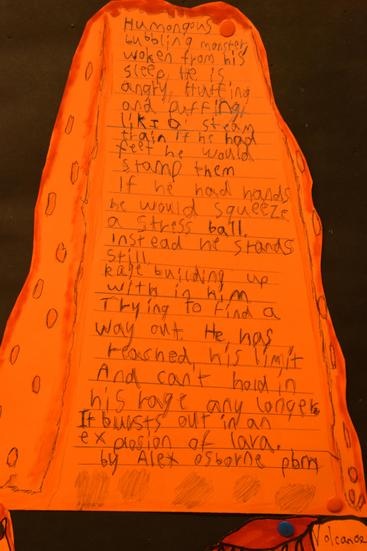 Humongous
bubbling monster
woken from his
sleep. He is
angry, Huffing
and puffing,
like a steam
train if he had
feet he would
stamp them
If he had hands
he would squeeze
a stress ball.
Instead he stands
still.
Rage building up
with in him
Trying to find a
way out. He has
reached his limit
And can't hold in
his rage any longer.
It bursts out in an
explosion of lava.
by Alex osborne pbm
Volcanoe